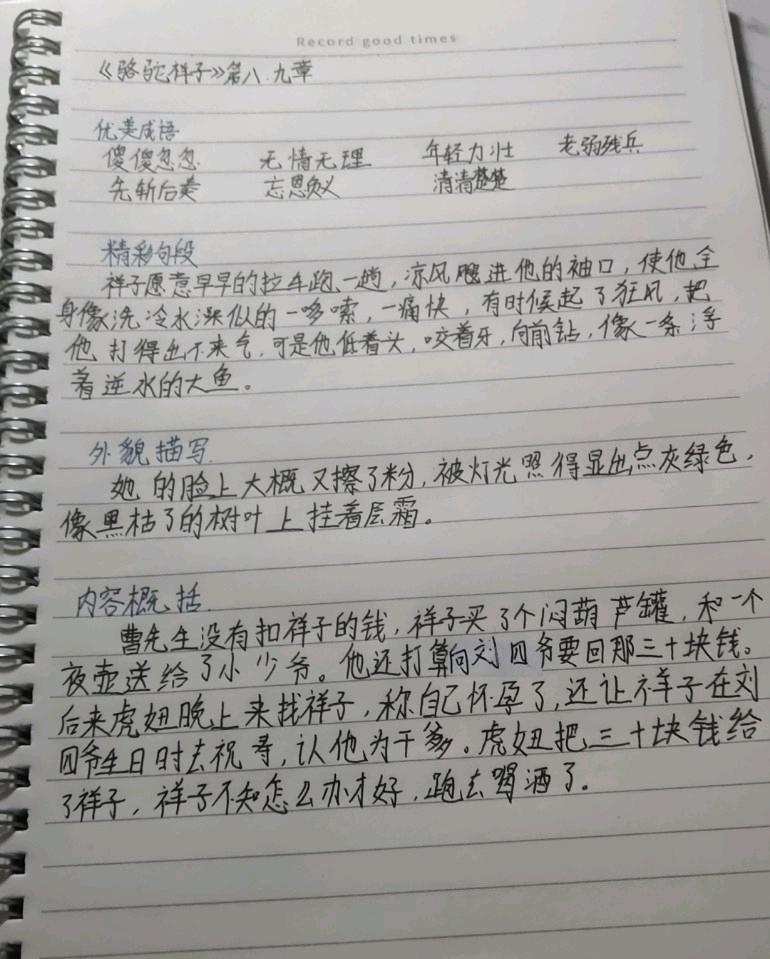 Record good times
《骆驼祥子》第八.九章
优美成语
傻傻忽忽 无情无理 年轻力壮 老弱残兵
先斩后奏 忘恩负义 清清楚楚
精彩句段
祥子愿意早早的拉车跑一趟，凉风飕进他的袖口，使他全
身像洗冷水澡似的一哆嗦，一痛快，有时候起了狂风，把
他打得出不来气，可是他低着头，咬着牙，向前钻，像一条浮
着逆水的大鱼。
外貌描写
她的脸上大概又擦了粉，被灯光照得显出点灰绿色，
像黑枯了的树叶上挂着层霜。
内容概括
曹先生没有扣祥子的钱，祥子买了个闷葫芦罐，和一个
夜壶送给了小少爷。他还打算向刘四爷要回那三十块钱。
后来虎妞晚上来找祥子，称自己怀孕了，还让祥子在刘
四爷生日时去祝寿，认他为干爹。虎妞把三十块钱给
了祥子，祥子不知怎么办才好，跑去喝酒了。